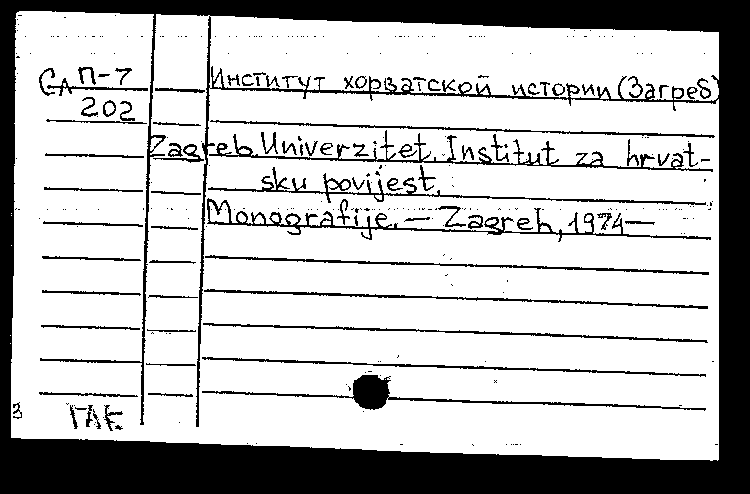 СА П-7 Институт хорватской истории (Загреб)
202
Zagreb. Univerzitet. Institut za hrvat-
sku povijest.
Monografije. — Zagreb, 1974—
3